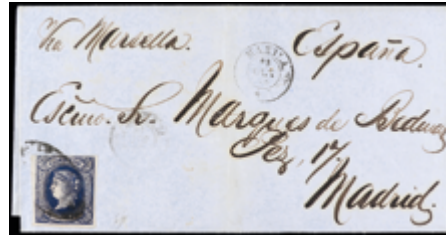 Via Marsella.
España.
MANILA
Escmo. Sr. Marques de
Pez, 17,
Madrid.